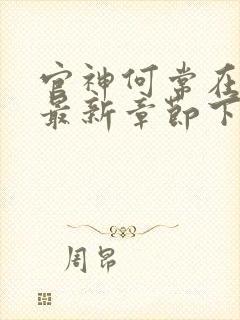 官神何常在
最新章节下
周昂